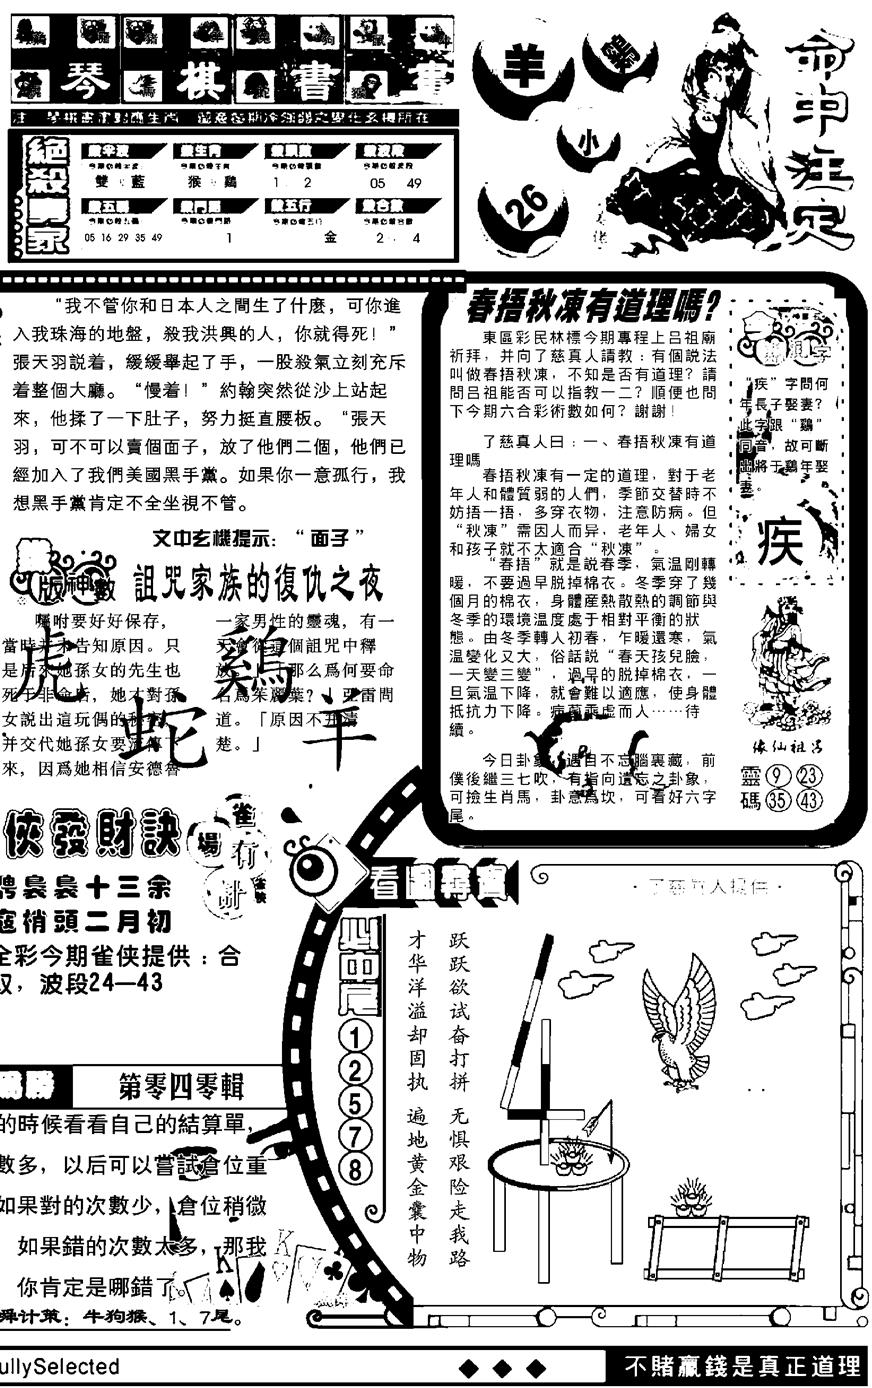 琴 棋 書 畫
絕殺專家
雙 藍
猴 鷄
1 . 2
05 49
05 16 29 35 49
1
金
2 . 4
羊
鷄
小
26
命中注定
“我不管你和日本人之間生了什麼，可你進
入我珠海的地盤，殺我洪興的人，你就得死！”
張天羽説着，緩緩舉起了手，一股殺氣立刻充斥
着整個大廳。“慢着！”約翰突然從沙上站起
來，他揉了一下肚子，努力挺直腰板。“張天
羽，可不可以賣個面子，放了他們二個，他們已
經加入了我們美國黑手黨。如果你一意孤行，我
想黑手黨肯定不全坐視不管。
文中玄機提示：“面子”
版神數
詛咒家族的復仇之夜
囑咐要好好保存，
當時并未告知原因。只
是后來她孫女的先生也
死于非命后，她才對孫
女説出這玩偶的秘密
并交代她孫女要流傳下
來，因爲她相信安德魯
一家男性的靈魂，有一
天會從這個詛咒中釋
那么爲何要命
名爲茱麗葉？」亞雷問
道。「原因不并清
楚。」
虎 鷄
蛇 羊
春捂秋凍有道理嗎？
東區彩民林標今期專程上吕祖廟
祈拜，并向了慈真人請教：有個説法
叫做春捂秋凍，不知是否有道理？請
問吕祖能否可以指教一二？順便也問
下今期六合彩術數如何？謝謝！
了慈真人曰：一、春捂秋凍有道
理嗎
春捂秋凍有一定的道理，對于老
年人和體質弱的人們，季節交替時不
妨捂一捂，多穿衣物，注意防病。但
“秋凍”需因人而异，老年人、婦女
和孩子就不太適合“秋凍”。
“春捂”就是説春季，氣温剛轉
暖，不要過早脱掉棉衣。冬季穿了幾
個月的棉衣，身體産熱散熱的調節與
冬季的環境温度處于相對平衡的狀
態。由冬季轉人初春，乍暖還寒，氣
温變化又大，俗話説“春天孩兒臉，
一天變三變”，過早的脱掉棉衣，一
旦氣温下降，就會難以適應，使身體
抵抗力下降。病菌乘虚而人……待
續。
今日卦象，遇目不忘腦裏藏，前
僕後繼三七吹，有指向遺忘之卦象，
可撿生肖馬，卦意爲坎，可看好六字
尾。
“疾”字問何
年長子娶妻？
此字跟“鷄”
同音，故可斷
出將于鷄年娶
妻。
疾
像仙祖吕
靈 9 23
碼 35 43
俠發財訣
雀場有計
雀俠
騁裊裊十三余
蔻梢頭二月初
全彩今期雀俠提供：合
波段24—43
第零四零輯
的時候看看自己的結算單，
數多，以后可以嘗試倉位重
如果對的次數少，倉位稍微
如果錯的次數太多，那我
你肯定是哪錯了
舜计策：牛狗猴、1、7尾。
看圖尋寶
·了慈真人提供·
必中尾
1
2
5
7
8
跃跃欲试奋打拼 无惧艰险走我路
才华洋溢却固执 遍地黄金囊中物
ullySelected
不賭贏錢是真正道理